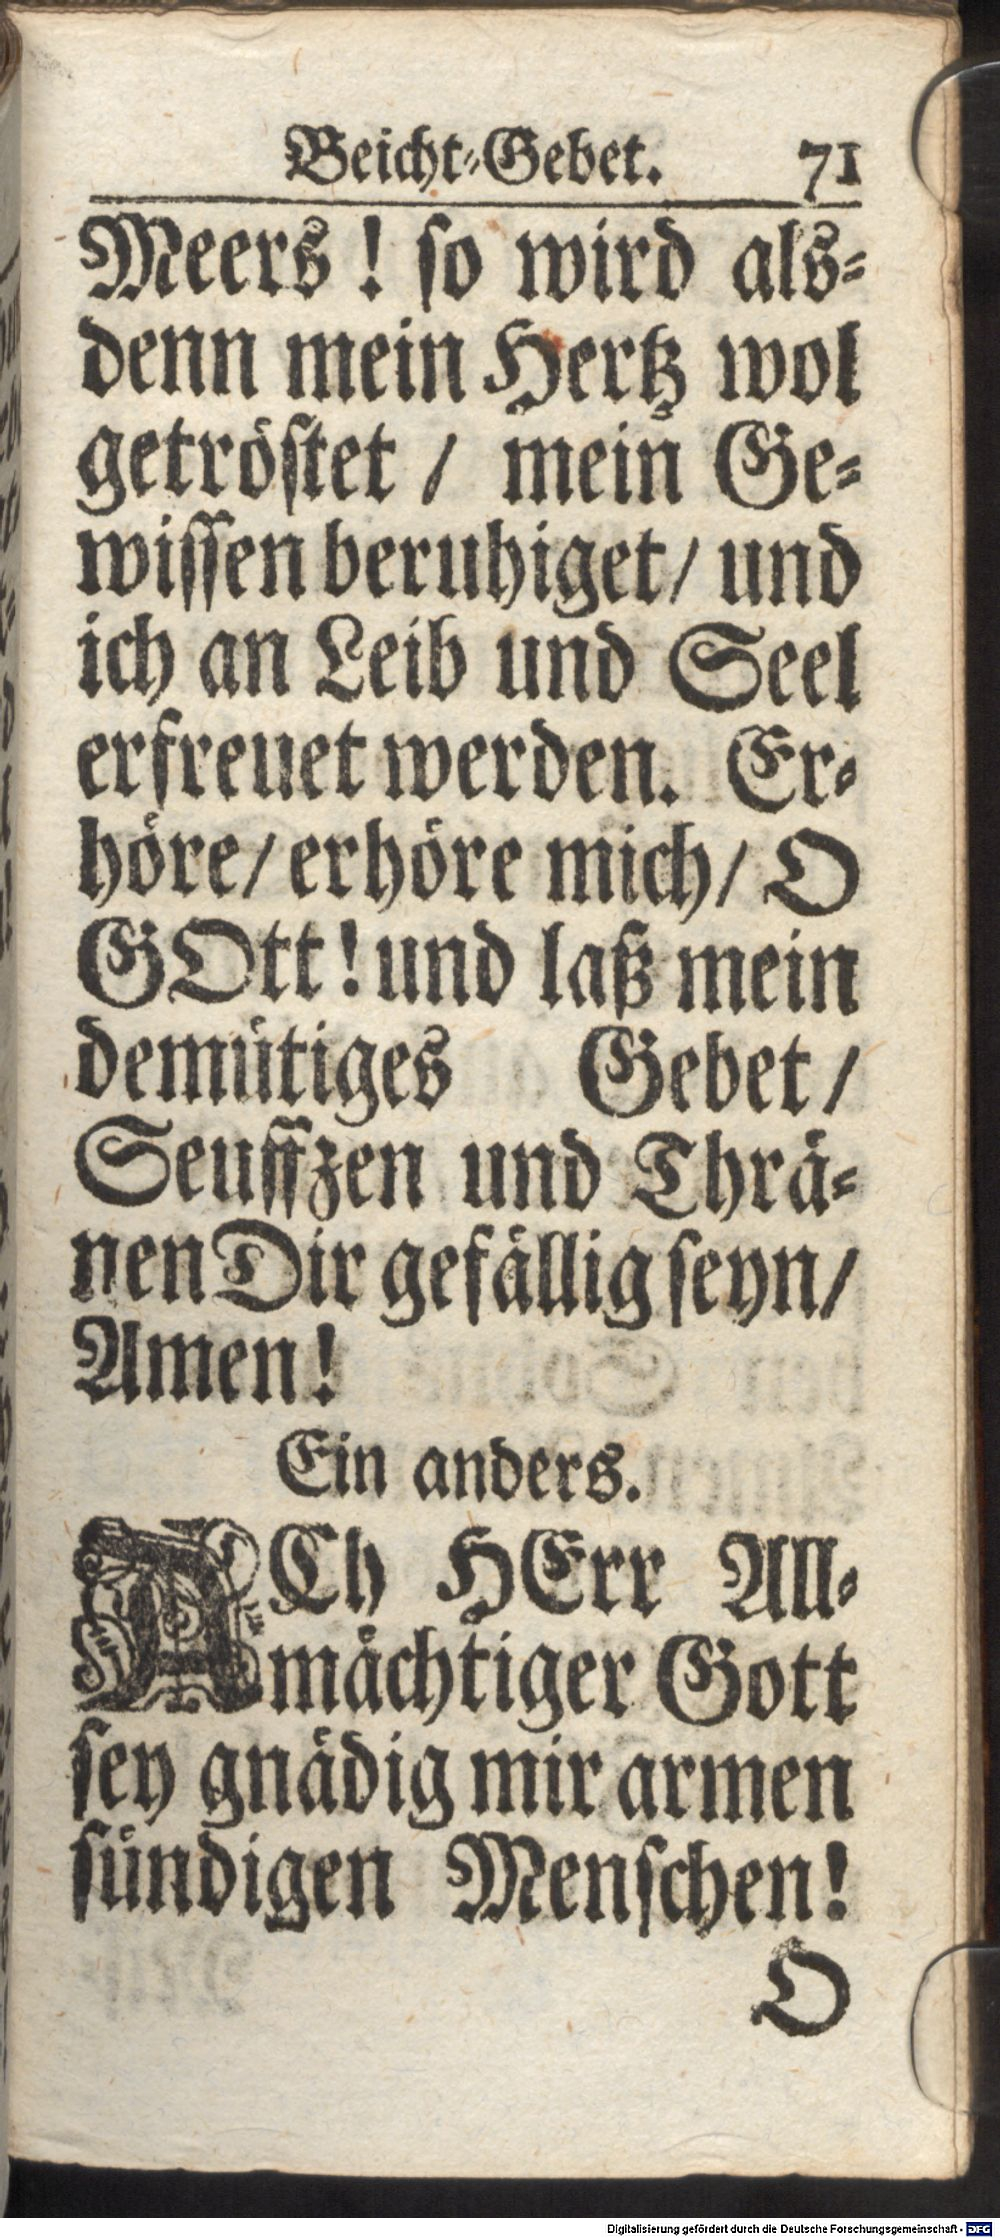 Beicht-Gebet. 71
Meers! so wird als-
denn mein Hertz wol
getröstet / mein Ge-
wissen beruhiget / und
ich an Leib und Seel
erfreuet werden. Er-
höre / erhöre mich / O
GOtt! und laß mein
demütiges Gebet /
Seuffzen und Thrä-
nen Dir gefällig seyn /
Amen!
Ein anders.
ACh HErr All-
mächtiger Gott
sey gnädig mir armen
sündigen Menschen!
O
Digitalisierung gefördert durch die Deutsche Forschungsgemeinschaft - DFG